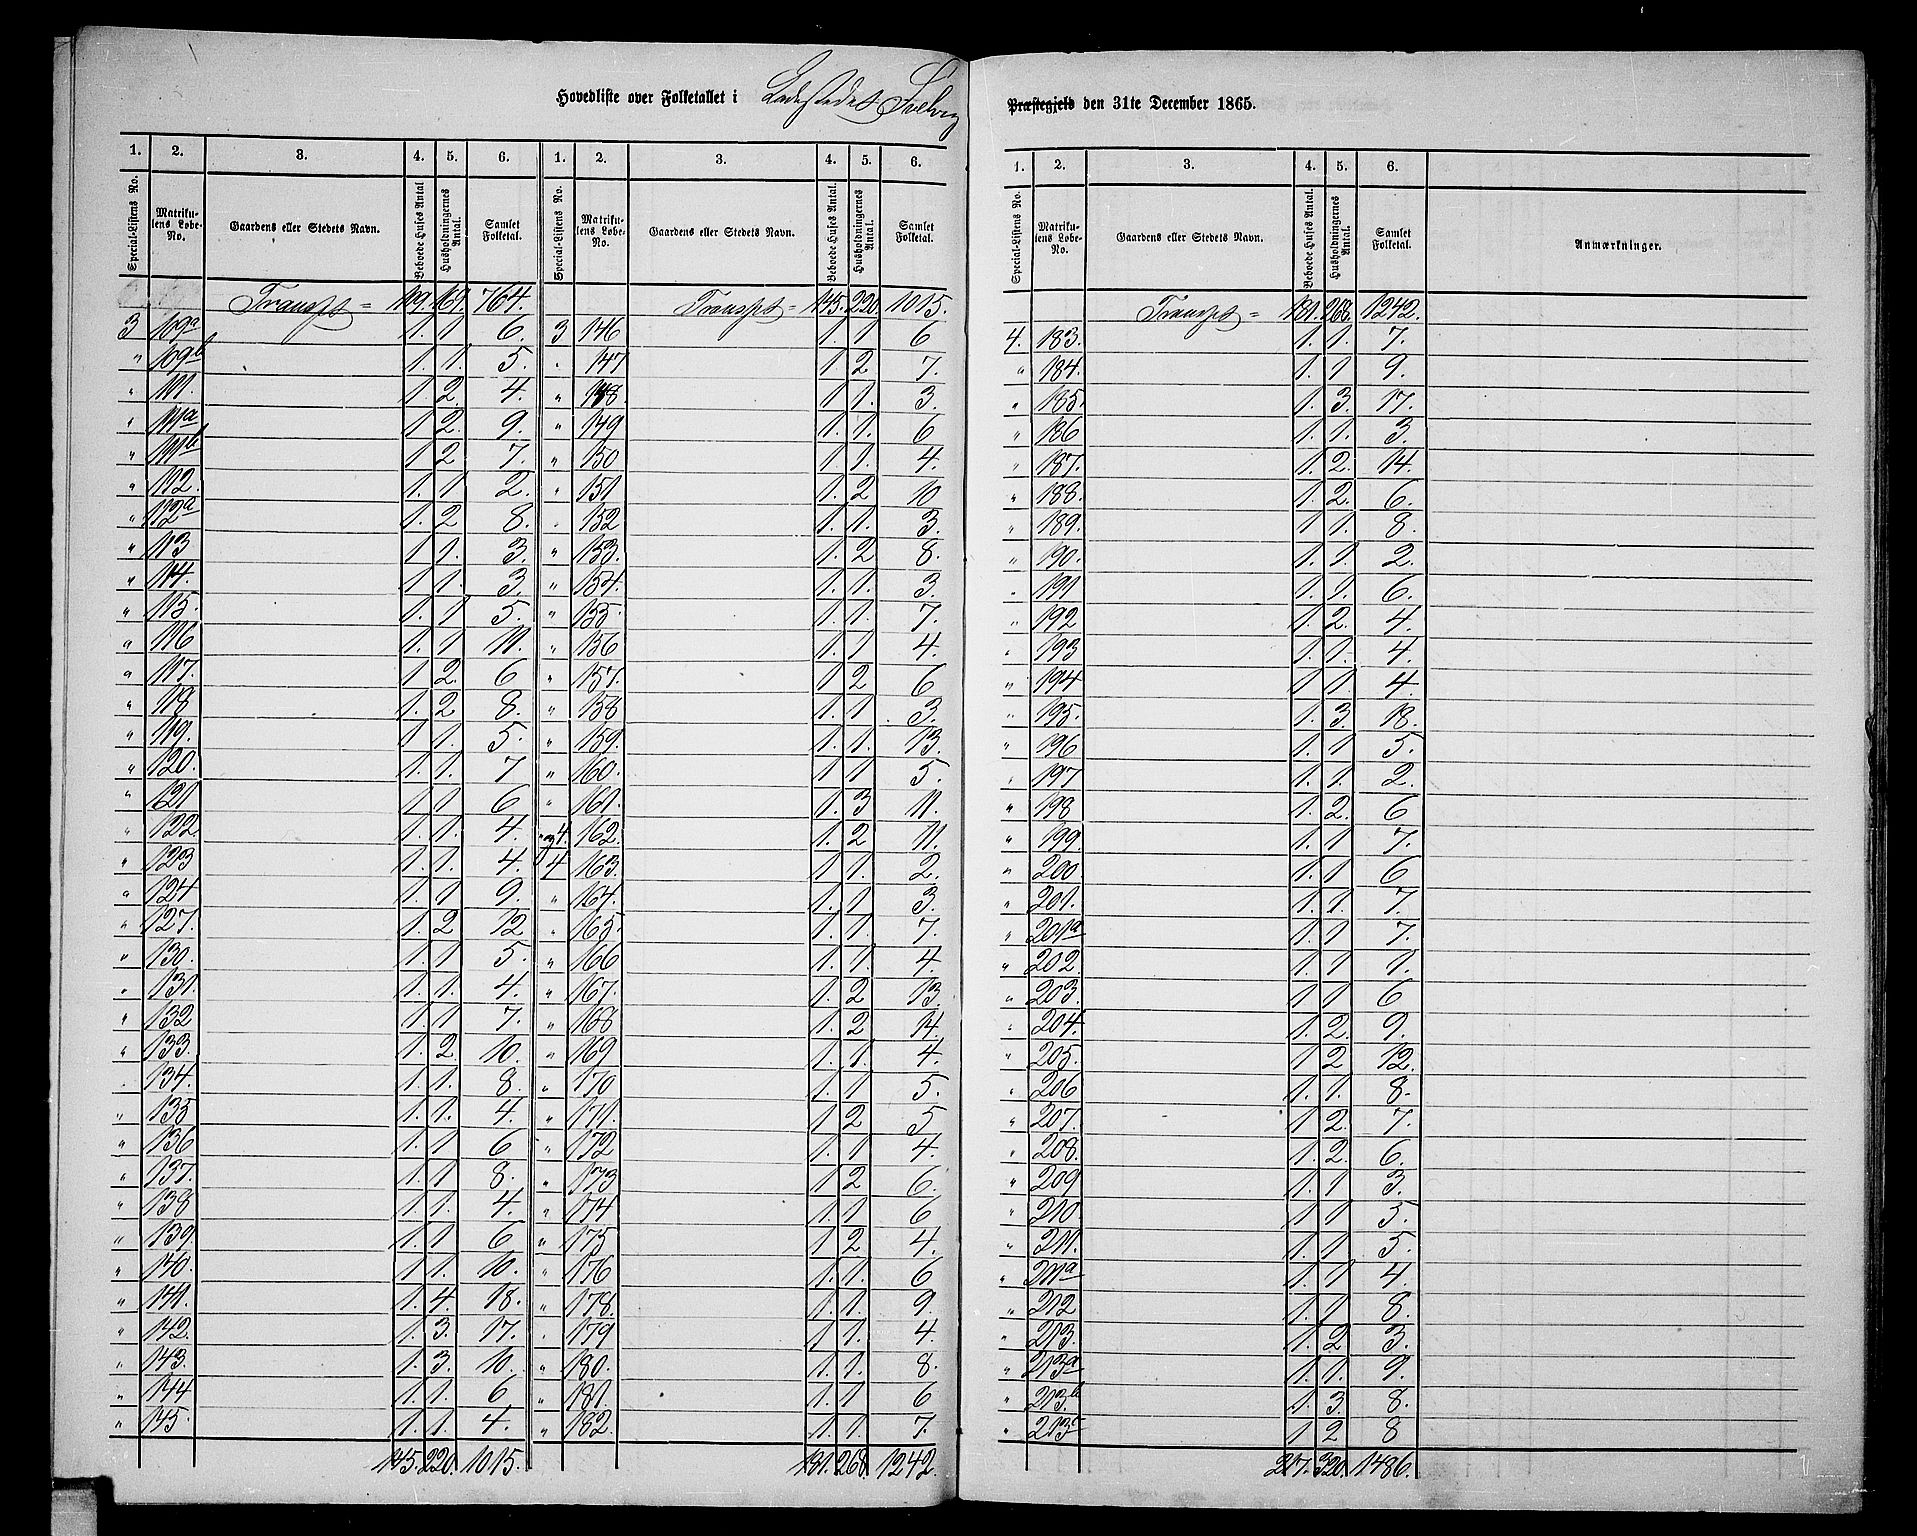 Hovedliste over Folketallet i Ladestedet Svelvig
Præstegjeld den 31te December 1865.
1. 2. 3. 4. 5. 6. 1. 2. 3. 4. 5. 6.
Special-Listens No. Matrikulens Løbe-No. Gaardens eller Stedets Navn. Beboede Huses Antal Husholdningernes Antal. Samlet Folketal. Special-Listens No. Matrikulens Løbe-No. Gaardens eller Stedets Navn. Beboede Huses Antal. Husholdningernes Antal. Samlet Folketal.
Transpt = 109. 169. 764. Transpt = 145. 220. 1015.
3 109a 1. 1 6. 3 146 1. 1 6
" 109b 1. 1. 5. " 147 1 2 7.
" 111. 1 2. 4. " 148. 1 1. 3.
" 111a 1 2. 9. " 149 1. 1. 6
" 111b 1 2 7. " 150 1. 1. 4.
" 112. 1. 1 2. " 151 1. 2 10
" 112a 1. 2 8. " 152 1. 1. 3.
" 113 1 1. 3. " 153. 1. 2 8.
" 114. 1 1. 3. " 154. 1. 1. 3.
" 115. 1. 1 5. " 155. 1. 1 7.
" 116 1. 1 11. " 156 1. 1 4.
" 117. 1 2. 6 " 157. 1 2 6
" 118 1. 2 8. " 158 1. 1 3.
" 119. 1 1. 5. " 159. 1. 1. 13.
" 120. 1. 1. 7 " 160. 1 1 5.
" 121 1 1 6 " 161. 1. 3 11.
" 122. 1. 1. 4. " 4. 162. 1. 2 11.
" 123 1. 1. 4. 4 163. 1 1. 2.
" 124 1. 1 9. " 164. 1. 1 3.
" 127. 1. 2 12 " 165. 1. 1 7.
" 130. 1 1 5. " 166 1. 1. 4.
" 131. 1. 1. 4. " 167. 1. 2 13.
" 132 1 1 7. " 168 1. 2 14.
" 133. 1. 2. 10. " 169 1. 1. 4
" 134. 1. 1. 8. " 170 1. 1 5.
" 135 1 1. 4. " 171. 1 2 5
" 136 1. 1 6 " 172 1. 1 4.
" 137. 1. 1 8. " 173 1 2 6.
" 138 1. 1. 4. " 174 1. 1 6
" 139. 1. 1 6 " 175 1 2 4.
" 140. 1 1. 10. " 176 1. 1. 6
" 141. 1. 4. 18. " 178. 1. 1. 9.
" 142. 1. 3. 17. " 179 1 1. 4
" 143. 1. 3. 10. " 180. 1. 1. 8.
" 144 1. 1. 6 " 181. 1. 1 6
" 145. 1. 1. 4. " 182. 1. 1. 7.
145. 220. 1015. 181. 268. 1242.
1. 2. 3. 4. 5. 6.
Special-Listens No. Matrikulens Løbe-No. Gaardens eller Stedets Navn. Beboede Huses Antal. Husholdningernes Antal. Samlet Folketal. Anmærkninger.
Transpt = 181. 268. 1242.
4. 183. 1. 1. 7.
" 184. 1. 1 9.
" 185. 1. 3. 17.
" 186 1 1. 3.
" 187. 1. 2. 14.
" 188. 1 2. 6.
" 189. 1 1. 8.
" 190. 1. 1. 2.
" 191 1. 1. 6.
" 192 1. 2. 4.
" 193 1. 1. 4.
" 194 1 1. 4.
" 195. 1. 3. 18.
" 196 1. 1 5.
" 197 1. 1. 2.
" 198 1. 2. 6
" 199. 1. 1 7.
" 200. 1. 1 6
" 201. 1. 1. 7.
" 201a 1. 1 7.
" 202. 1 1 1.
" 203. 1 1 6
" 204. 1. 2. 9.
" 205. 1 2 12.
" 206 1. 1. 8.
" 207. 1 2. 7.
" 208. 1. 2. 6.
" 209 1. 1 3.
" 210 1 1 5.
" 211. 1. 1 5.
" 211a 1. 1 4.
" 212 1. 1. 8.
" 213. 1. 2 3.
" 213a 1 1. 9.
" 213b 1. 3. 8.
" 213c 1 2 8
217. 320. 1486.